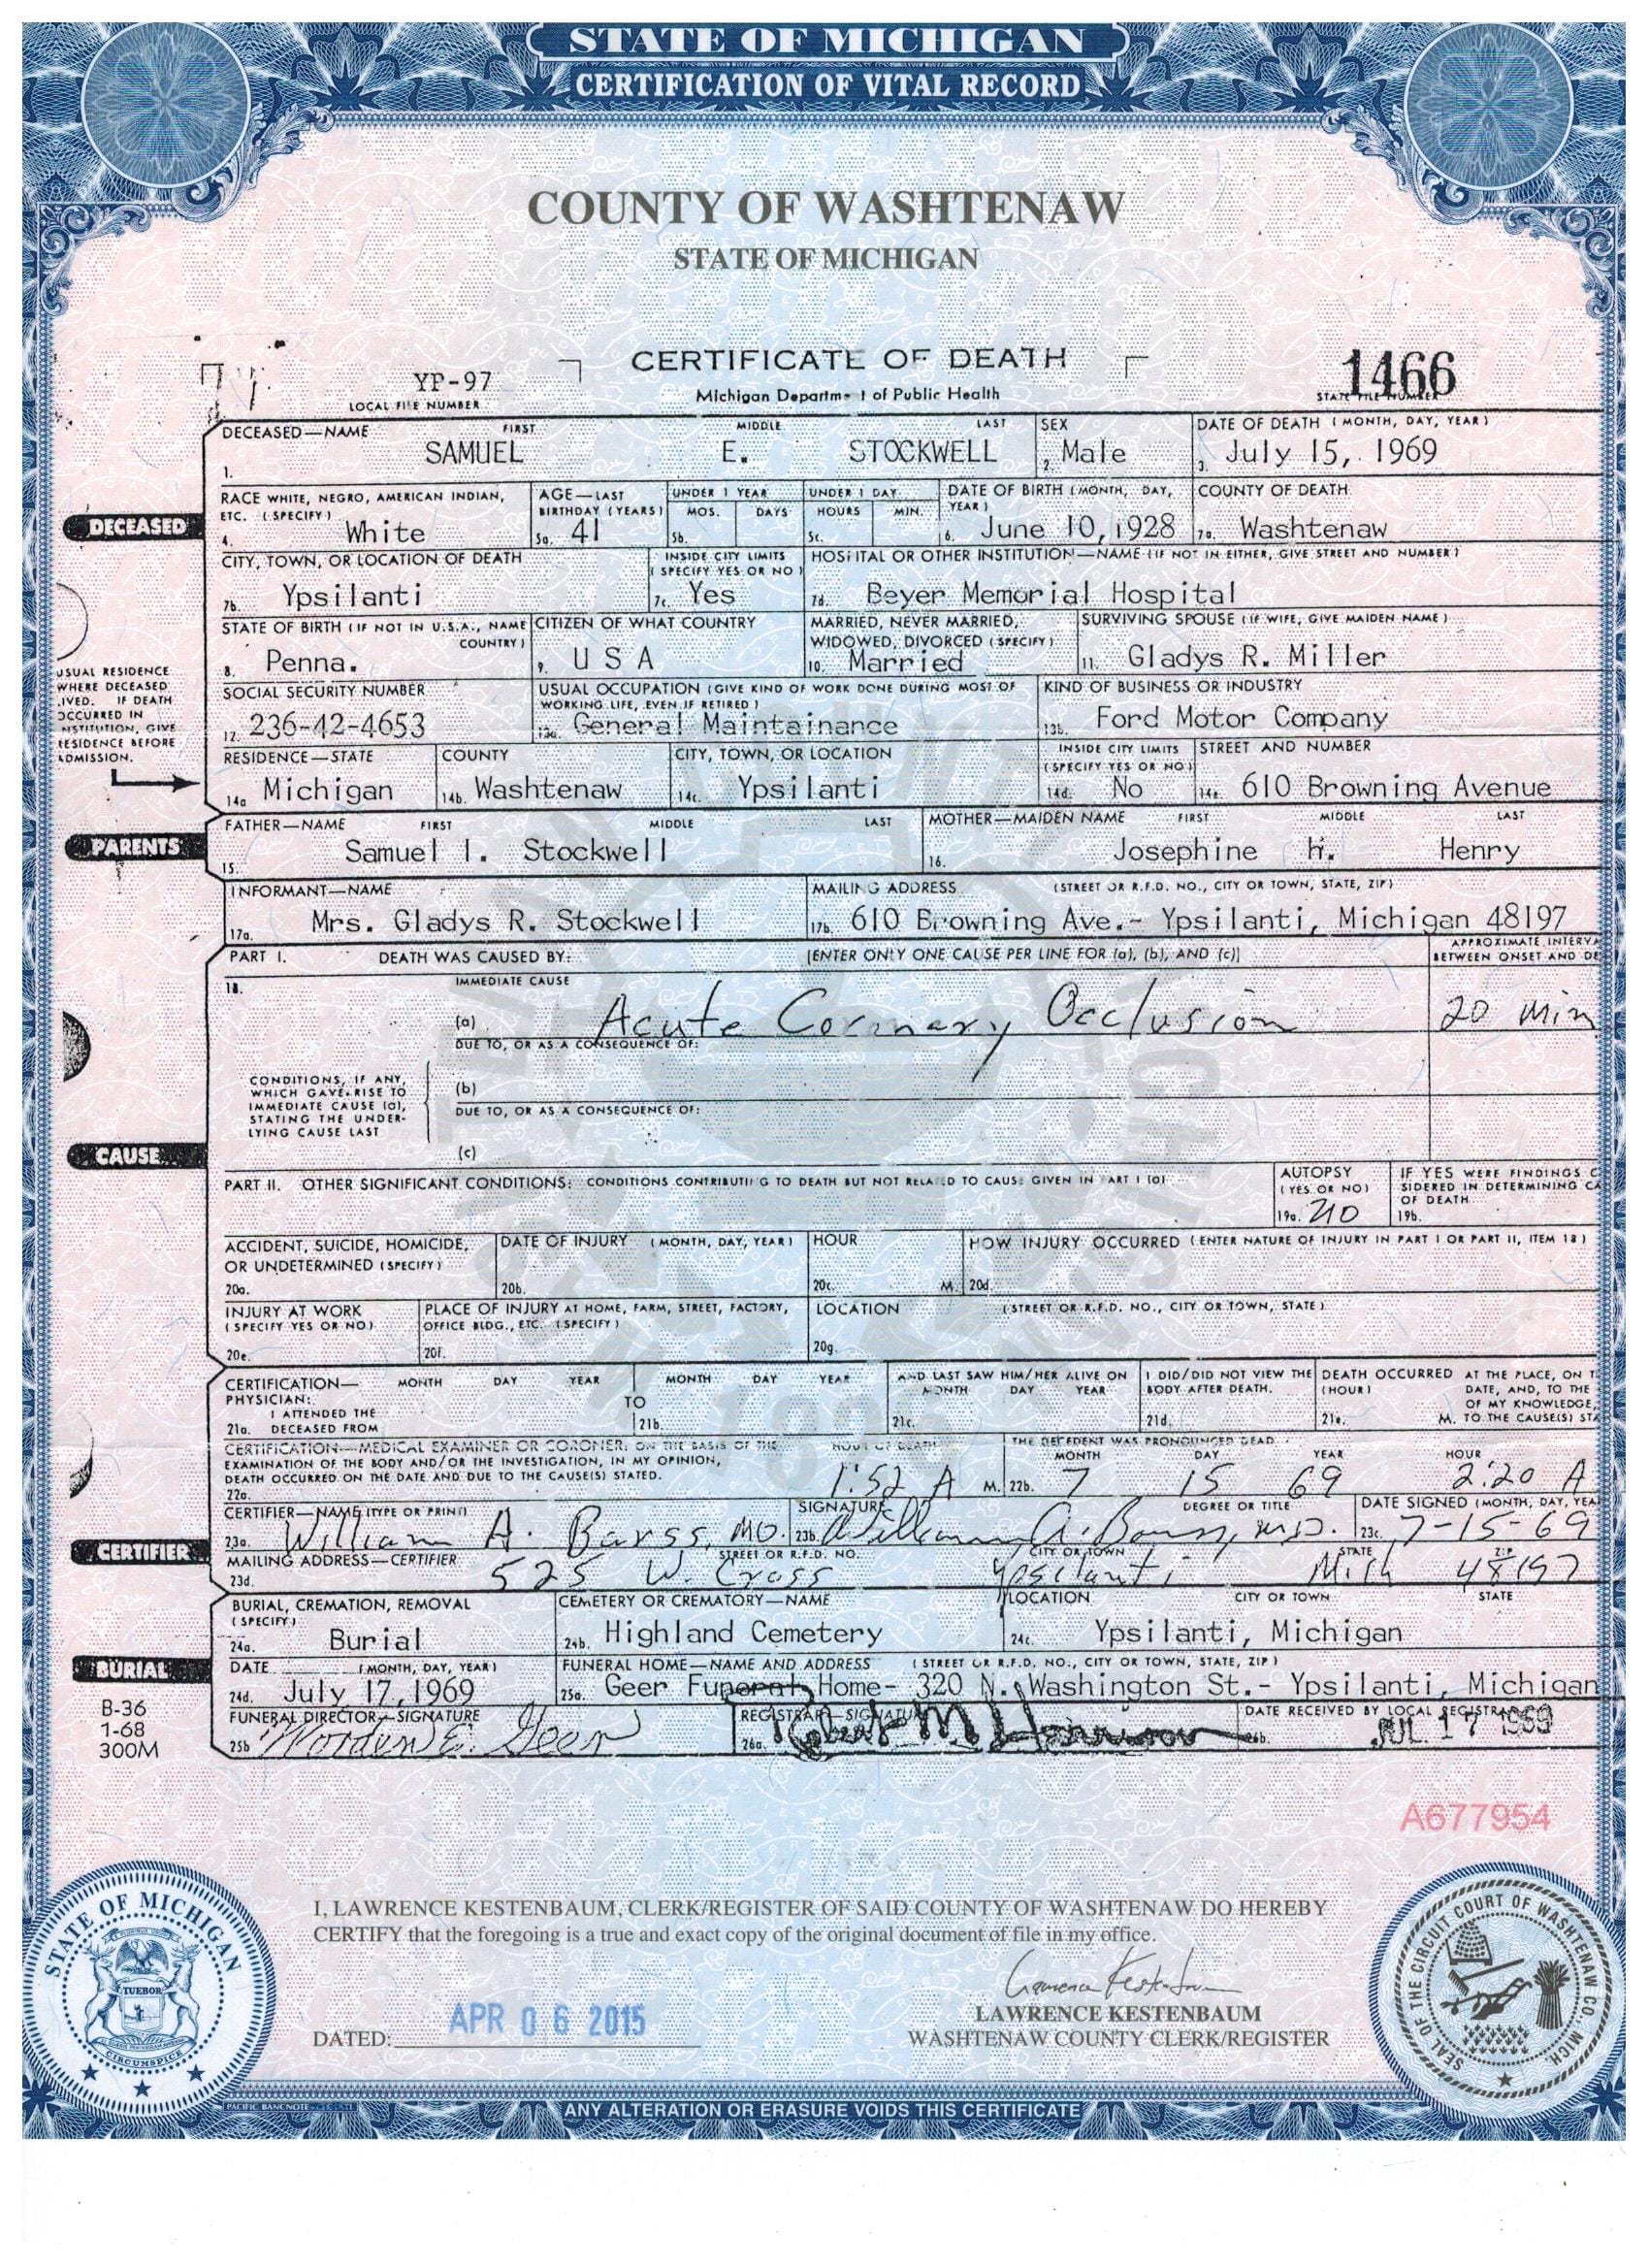 STATE OF MICHIGAN
CERTIFICATION OF VITAL RECORD
COUNTY OF WASHTENAW
STATE OF MICHIGAN
CERTIFICATE OF DEATH
Michigan Department of Public Health
YP-97
LOCAL FILE NUMBER
1466
STATE FILE NUMBER
DECEASED—NAME FIRST MIDDLE LAST SEX DATE OF DEATH (MONTH, DAY, YEAR)
1. SAMUEL E. STOCKWELL 2. Male 3. July 15, 1969
DECEASED
RACE WHITE, NEGRO, AMERICAN INDIAN, ETC. (SPECIFY) AGE—LAST BIRTHDAY (YEARS) UNDER 1 YEAR MOS. DAYS UNDER 1 DAY HOURS MIN. DATE OF BIRTH (MONTH, DAY, YEAR) COUNTY OF DEATH
4. White 5a. 41 5b. 5c. 6. June 10, 1928 7a. Washtenaw
CITY, TOWN, OR LOCATION OF DEATH INSIDE CITY LIMITS (SPECIFY YES OR NO) HOSPITAL OR OTHER INSTITUTION—NAME (IF NOT IN EITHER, GIVE STREET AND NUMBER)
7b. Ypsilanti 7c. Yes 7d. Beyer Memorial Hospital
STATE OF BIRTH (IF NOT IN U.S.A., NAME COUNTRY) CITIZEN OF WHAT COUNTRY MARRIED, NEVER MARRIED, WIDOWED, DIVORCED (SPECIFY) SURVIVING SPOUSE (IF WIFE, GIVE MAIDEN NAME)
8. Penna. 9. U S A 10. Married 11. Gladys R. Miller
USUAL RESIDENCE
WHERE DECEASED
LIVED. IF DEATH
OCCURRED IN
INSTITUTION, GIVE
RESIDENCE BEFORE
ADMISSION.
SOCIAL SECURITY NUMBER USUAL OCCUPATION (GIVE KIND OF WORK DONE DURING MOST OF WORKING LIFE, EVEN IF RETIRED) KIND OF BUSINESS OR INDUSTRY
12. 236-42-4653 13a. General Maintainance 13b. Ford Motor Company
RESIDENCE—STATE COUNTY CITY, TOWN, OR LOCATION INSIDE CITY LIMITS (SPECIFY YES OR NO) STREET AND NUMBER
14a Michigan 14b. Washtenaw 14c. Ypsilanti 14d. No 14e. 610 Browning Avenue
PARENTS
FATHER—NAME FIRST MIDDLE LAST MOTHER—MAIDEN NAME FIRST MIDDLE LAST
15. Samuel I. Stockwell 16. Josephine H. Henry
INFORMANT—NAME MAILING ADDRESS (STREET OR R.F.D. NO., CITY OR TOWN, STATE, ZIP)
17a. Mrs. Gladys R. Stockwell 17b. 610 Browning Ave.- Ypsilanti, Michigan 48197
PART I. DEATH WAS CAUSED BY: [ENTER ONLY ONE CAUSE PER LINE FOR (a), (b), AND (c)] APPROXIMATE INTERVA
BETWEEN ONSET AND DE
18. IMMEDIATE CAUSE
(a) Acute Coronary Occlusion 20 min
DUE TO, OR AS A CONSEQUENCE OF:
CONDITIONS, IF ANY,
WHICH GAVE RISE TO
IMMEDIATE CAUSE (a),
STATING THE UNDER-
LYING CAUSE LAST
(b)
DUE TO, OR AS A CONSEQUENCE OF:
(c)
CAUSE
PART II. OTHER SIGNIFICANT CONDITIONS: CONDITIONS CONTRIBUTING TO DEATH BUT NOT RELATED TO CAUSE GIVEN IN PART I (a) AUTOPSY (YES OR NO) IF YES WERE FINDINGS C
SIDERED IN DETERMINING CA
OF DEATH
19a. no 19b.
ACCIDENT, SUICIDE, HOMICIDE, OR UNDETERMINED (SPECIFY) DATE OF INJURY (MONTH, DAY, YEAR) HOUR HOW INJURY OCCURRED (ENTER NATURE OF INJURY IN PART I OR PART II, ITEM 18)
20a. 20b. 20c. M. 20d.
INJURY AT WORK (SPECIFY YES OR NO) PLACE OF INJURY AT HOME, FARM, STREET, FACTORY, OFFICE BLDG., ETC. (SPECIFY) LOCATION (STREET OR R.F.D. NO., CITY OR TOWN, STATE)
20e. 20f. 20g.
CERTIFICATION— MONTH DAY YEAR MONTH DAY YEAR AND LAST SAW HIM/HER ALIVE ON MONTH DAY YEAR I DID/DID NOT VIEW THE BODY AFTER DEATH. DEATH OCCURRED (HOUR) AT THE PLACE, ON T
DATE, AND, TO THE
OF MY KNOWLEDGE,
TO THE CAUSE(S) STA
PHYSICIAN:
I ATTENDED THE
21a. DECEASED FROM TO 21b. 21c. 21d. 21e. M.
CERTIFICATION—MEDICAL EXAMINER OR CORONER: ON THE BASIS OF THE EXAMINATION OF THE BODY AND/OR THE INVESTIGATION, IN MY OPINION, DEATH OCCURRED ON THE DATE AND DUE TO THE CAUSE(S) STATED. HOUR OF DEATH THE DECEDENT WAS PRONOUNCED DEAD MONTH DAY YEAR HOUR
22a. 1:52 A M. 22b. 7 15 69 2:20 A
CERTIFIER—NAME (TYPE OR PRINT) SIGNATURE DEGREE OR TITLE DATE SIGNED (MONTH, DAY, YEA
23a. William A. Barss, MD. 23b. William A. Barss, M.D. 23c. 7-15-69
CERTIFIER
MAILING ADDRESS—CERTIFIER STREET OR R.F.D. NO. CITY OR TOWN STATE ZIP
23d. 525 W. Cross Ypsilanti Mich 48197
BURIAL, CREMATION, REMOVAL (SPECIFY) CEMETERY OR CREMATORY—NAME LOCATION CITY OR TOWN STATE
24a. Burial 24b. Highland Cemetery 24c. Ypsilanti, Michigan
BURIAL
DATE (MONTH, DAY, YEAR) FUNERAL HOME—NAME AND ADDRESS (STREET OR R.F.D. NO., CITY OR TOWN, STATE, ZIP)
24d. July 17, 1969 25a. Geer Funeral Home- 320 N. Washington St.- Ypsilanti, Michigan
FUNERAL DIRECTOR—SIGNATURE REGISTRAR—SIGNATURE DATE RECEIVED BY LOCAL REGISTRAR
25b Worden E. Geer 26a. Robert M Harrison 26b. JUL 17 1969
B-36
1-68
300M
A677954
I, LAWRENCE KESTENBAUM, CLERK/REGISTER OF SAID COUNTY OF WASHTENAW DO HEREBY
CERTIFY that the foregoing is a true and exact copy of the original document of file in my office.
Lawrence Kestenbaum
LAWRENCE KESTENBAUM
WASHTENAW COUNTY CLERK/REGISTER
DATED: APR 06 2015
STATE OF MICHIGAN
TUEBOR
CIRCUMSPICE
SEAL OF THE CIRCUIT COURT OF WASHTENAW CO. MICH.
PACIFIC BANCNOTE
ANY ALTERATION OR ERASURE VOIDS THIS CERTIFICATE